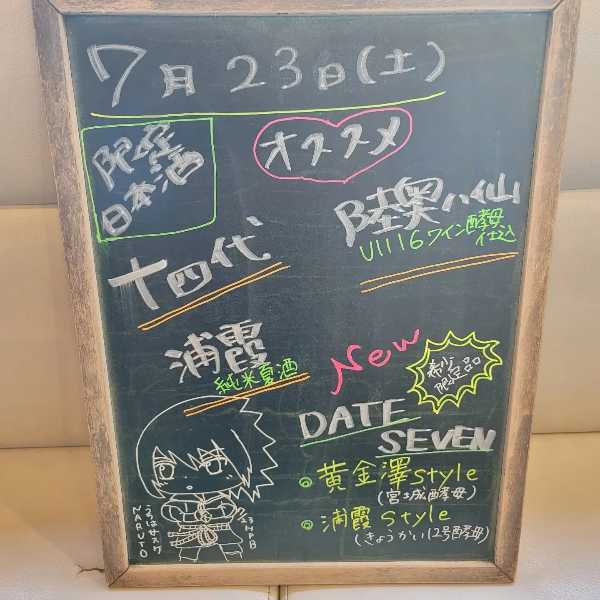 7月23日(土)
限定
日本酒
オススメ
十四代
陸奥八仙
V1116ワイン酵母
仕込
浦霞
純米夏酒
New
希少
限定品
DATE
SEVEN
◎黄金澤style
(宮城酵母)
◎浦霞style
(きょうかい12号酵母)
うちはサスケ
NARUTO